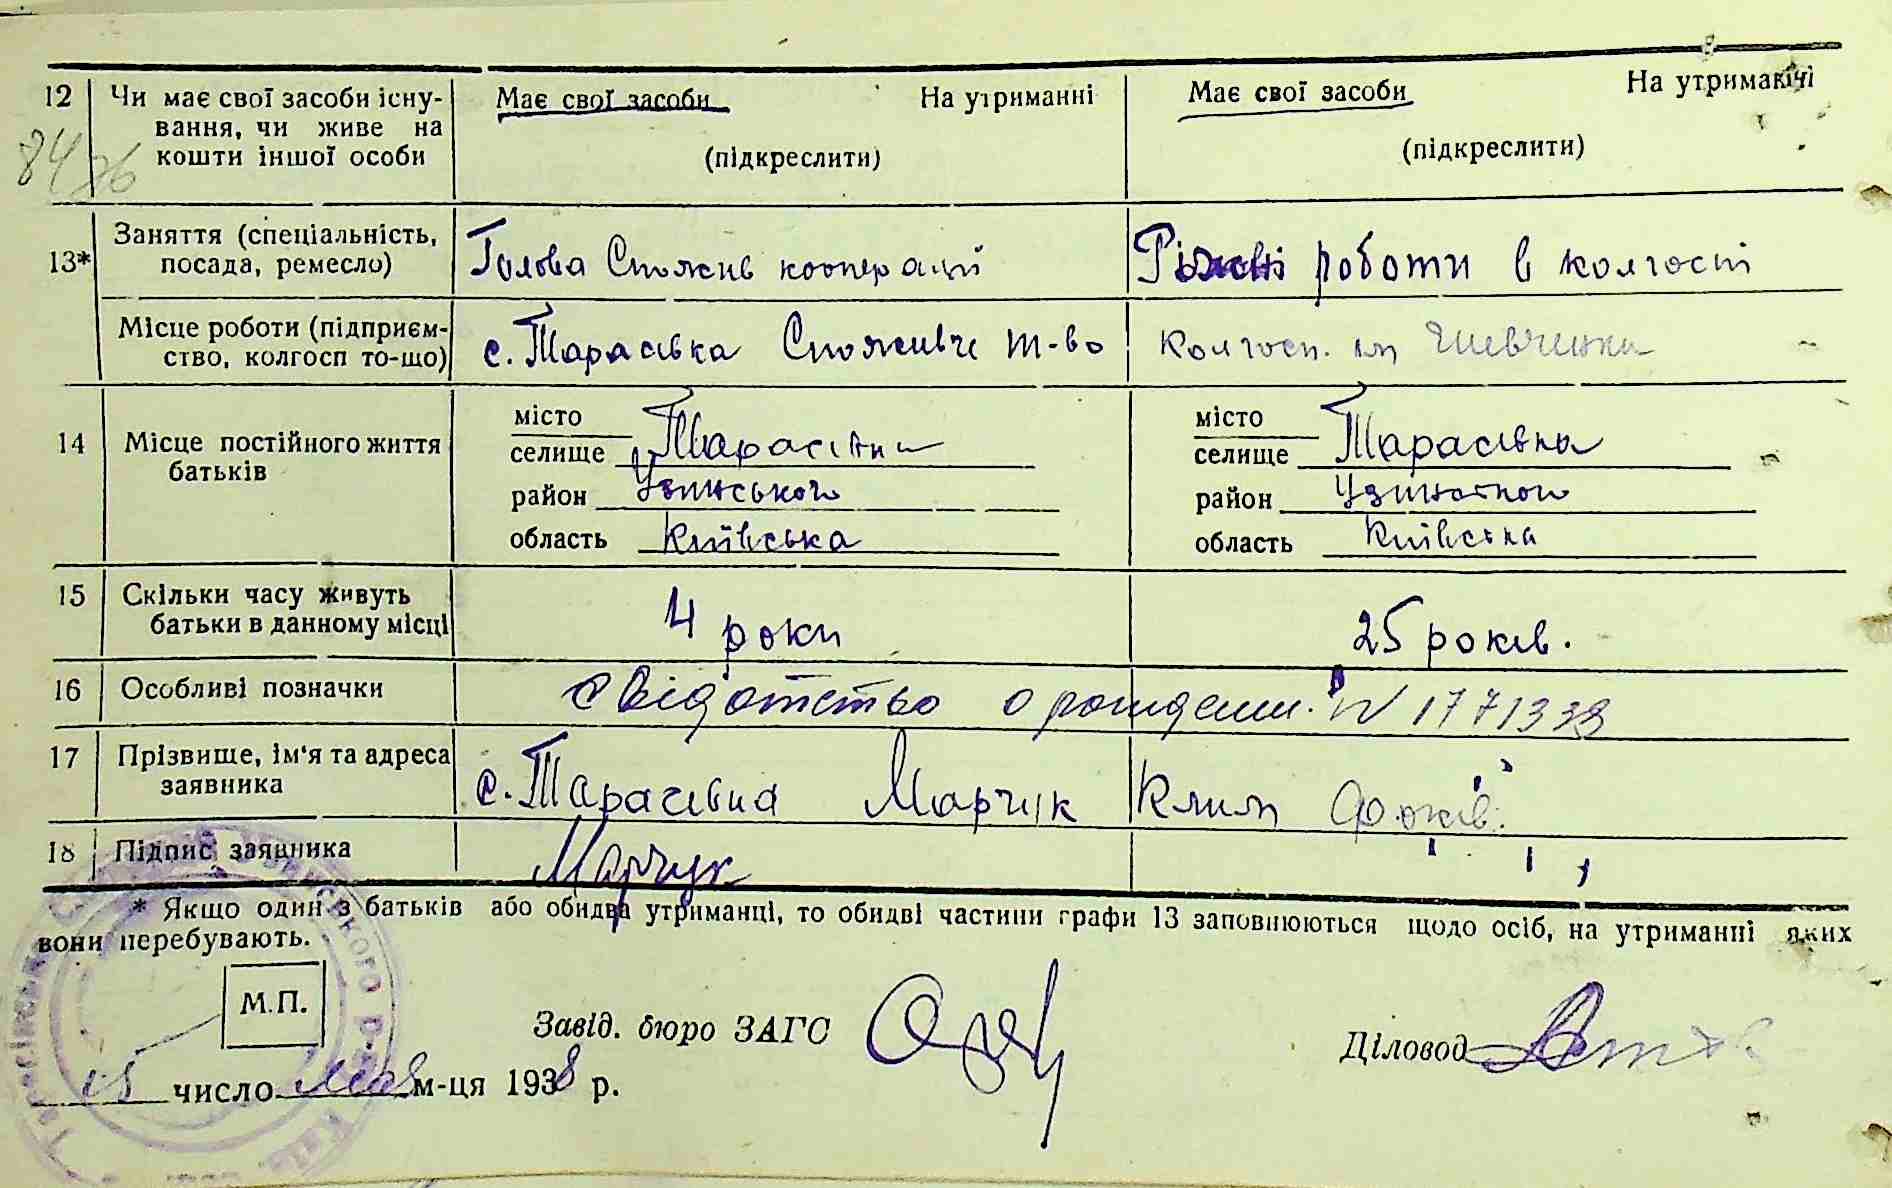 12 Чи має свої засоби існу- Має свої засоби На утриманні Має свої засоби На утриманні
вання, чи живе на
кошти іншої особи (підкреслити) (підкреслити)
84
13* Заняття (спеціальність, посада, ремесло) Голова Спожив кооперації Ріжні роботи в колгості
Місце роботи (підприєм- с. Тарасівка Споживче т-во Колгосп. ім Шевченка
ство, колгосп то-що)
14 Місце постійного життя батьків
місто місто
селище Тарасівка селище Тарасівка
район Узинського район Узинського
область Київська область Київська
15 Скільки часу живуть
батьки в данному місці 4 роки 25 років.
16 Особливі позначки свідотство о рождении. N 1771338
17 Прізвище, ім'я та адреса с. Тарасівка Марчук Клим Фоків.
заявника
18 Підпис заявника Марчук
* Якщо один з батьків або обидва утриманці, то обидві частини графи 13 заповнюються щодо осіб, на утриманні яких
вони перебувають.
М.П.
Завід. бюро ЗАГС Діловод
15 число мая м-ця 1938 р.